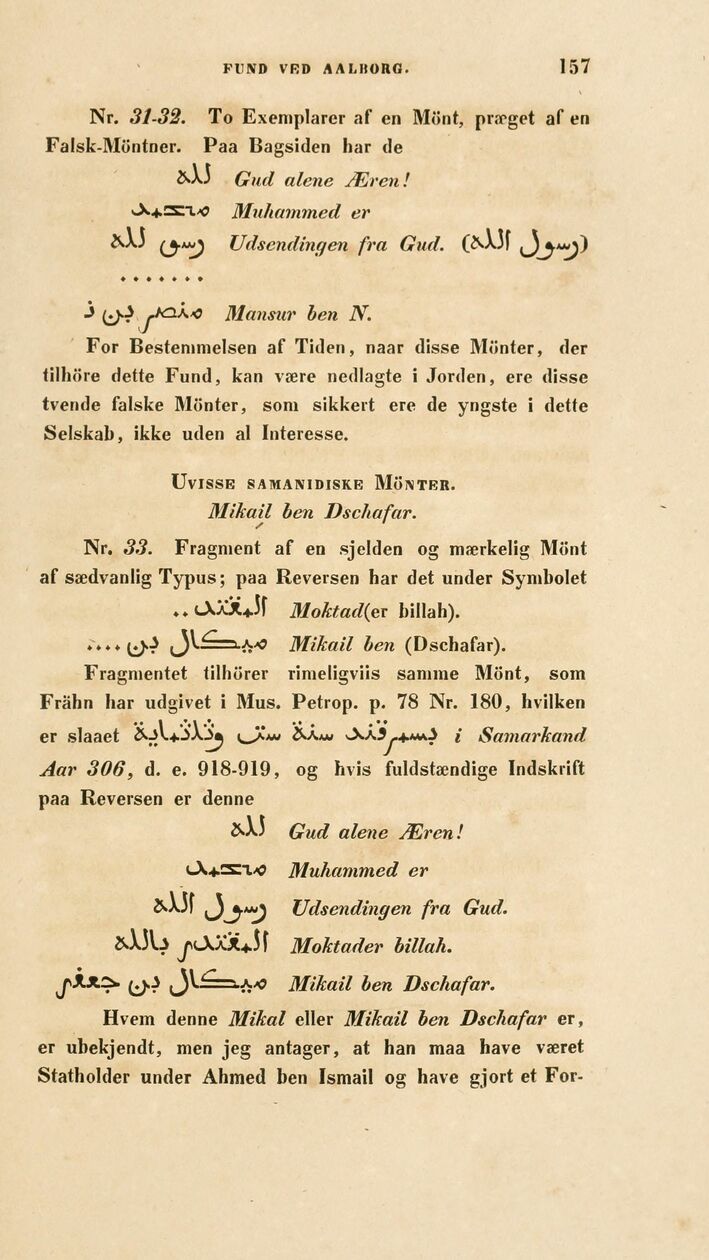 FUND VED AALBORG. 157
Nr. 31-32. To Exemplarer af en Mönt, præget af en
Falsk-Möntner. Paa Bagsiden har de
لله Gud alene Æren!
محمد Muhammed er
Udsendingen fra Gud. (رسول الله)
.......
Mansur ben N.
For Bestemmelsen af Tiden, naar disse Mönter, der
tilhöre dette Fund, kan være nedlagte i Jorden, ere disse
tvende falske Mönter, som sikkert ere de yngste i dette
Selskab, ikke uden al Interesse.
UVISSE SAMANIDISKE MÖNTER.
Mikail ben Dschafar.
Nr. 33. Fragment af en sjelden og mærkelig Mönt
af sædvanlig Typus; paa Reversen har det under Symbolet
.. المقتد Moktad(er billah).
.... ميكال بن Mikail ben (Dschafar).
Fragmentet tilhörer rimeligviis samme Mönt, som
Frähn har udgivet i Mus. Petrop. p. 78 Nr. 180, hvilken
er slaaet بسمرقند سنة ست وثلاثماية i Samarkand
Aar 306, d. e. 918-919, og hvis fuldstændige Indskrift
paa Reversen er denne
لله Gud alene Æren!
محمد Muhammed er
رسول الله Udsendingen fra Gud.
المقتدر بالله Moktader billah.
ميكال بن جعفر Mikail ben Dschafar.
Hvem denne Mikal eller Mikail ben Dschafar er,
er ubekjendt, men jeg antager, at han maa have været
Statholder under Ahmed ben Ismail og have gjort et For-